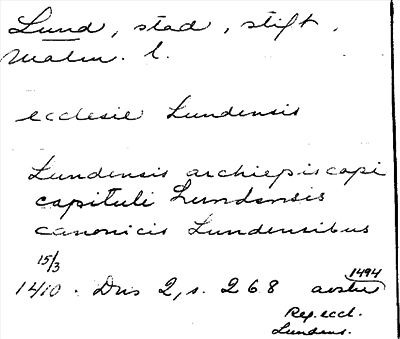 Lund, stad, stift,
Malm. l.
ecclesie Lundensis
Lundensis archiepiscopi
capituli Lundensis
canonicis Lundensibus
15/3
1410. Dns 2, s. 268
1494
Rep. eccl.
Lundens.